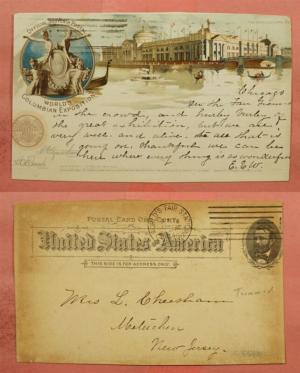 OFFICIAL
WORLD'S
COLUMBIAN EXPOSITION
Chicago
in the Fair
in the crowd, and hurley burley of
the great exhibition, but we are
very well and alive to all that is
going on. thankful we can be
here where every thing is so wonderful
E.E.W.
POSTAL CARD ONE CENT
United States America
THIS SIDE IS FOR ADDRESS ONLY
Mrs L. Cheesham
Metuchen
New Jersey.
Trimmed